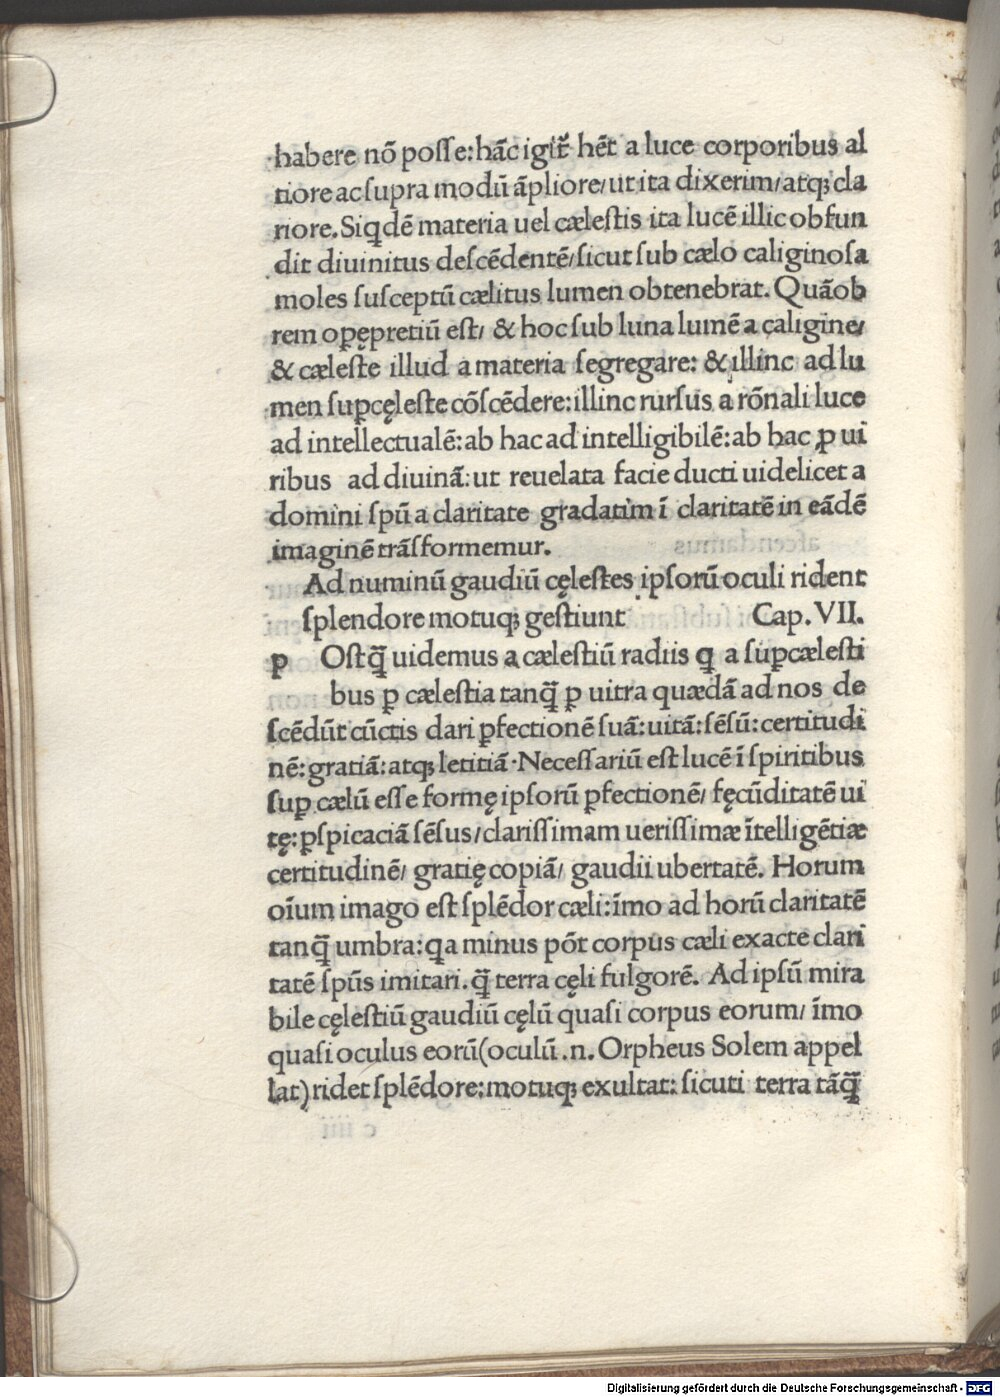 habere nō poſſe:hāc igit̃ hēt a luce corporibus al
tiore ac ſupra modū āpliore/ut ita dixerim/atqꝫ cla
riore. Siqdē materia uel cæleſtis ita lucē illic obfun
dit diuinitus deſcēdentē/ſicut ſub cælo caliginoſa
moles ſuſceptū cælitus lumen obtenebrat. Quāob
rem oꝑępretiū eſt/ & hoc ſub luna lumē a caligine/
& cæleſte illud a materia ſegregare: & illinc ad lu
men ſuꝑcęleſte cōſcēdere:illinc rurſus a rōnali luce
ad intellectualē:ab hac ad intelligibilē:ab hac ꝓ ui
ribus ad diuinā:ut reuelata facie ducti uidelicet a
domini ſpū a claritate gradatim ī claritatē in eādē
imaginē trāſformemur.
Ad numinū gaudiū cęleſtes ipſorū oculi rident
ſplendore motuqꝫ geſtiunt Cap. VII.
p Oſtq̄̃ uidemus a cæleſtiū radiis q a ſuꝑcæleſti
bus ꝑ cæleſtia tanq̄̃ ꝑ uitra quædā ad nos de
ſcēdūt cūctis dari ꝑfectionē ſuā:uitā:ſēſū:certitudi
nē:gratiā:atqꝫ letitiā·Neceſſariū eſt lucē ī ſpiritibus
ſuꝑ cælū eſſe formę ipſorū ꝑfectionē/ fęcūditatē ui
tę:ꝑſpicaciā ſēſus/clariſſimam ueriſſimæ ītelligētiæ
certitudinē/ gratię copiā/ gaudii ubertatē. Horum
oīum imago eſt ſplēdor cæli:īmo ad horū claritatē
tanq̄̃ umbra:qa minus pōt corpus cæli exacte clari
tatē ſpūs imitari.q̄̃ terra cęli fulgorē. Ad ipſū mira
bile cęleſtiū gaudiū cęlū quaſi corpus eorum/ īmo
quaſi oculus eorū(oculū .n. Orpheus Solem appel
lat)ridet ſplēdore:motuqꝫ exultat: ſicuti terra tāq̄̃
Digitalisierung gefördert durch die Deutsche Forschungsgemeinschaft - DFG